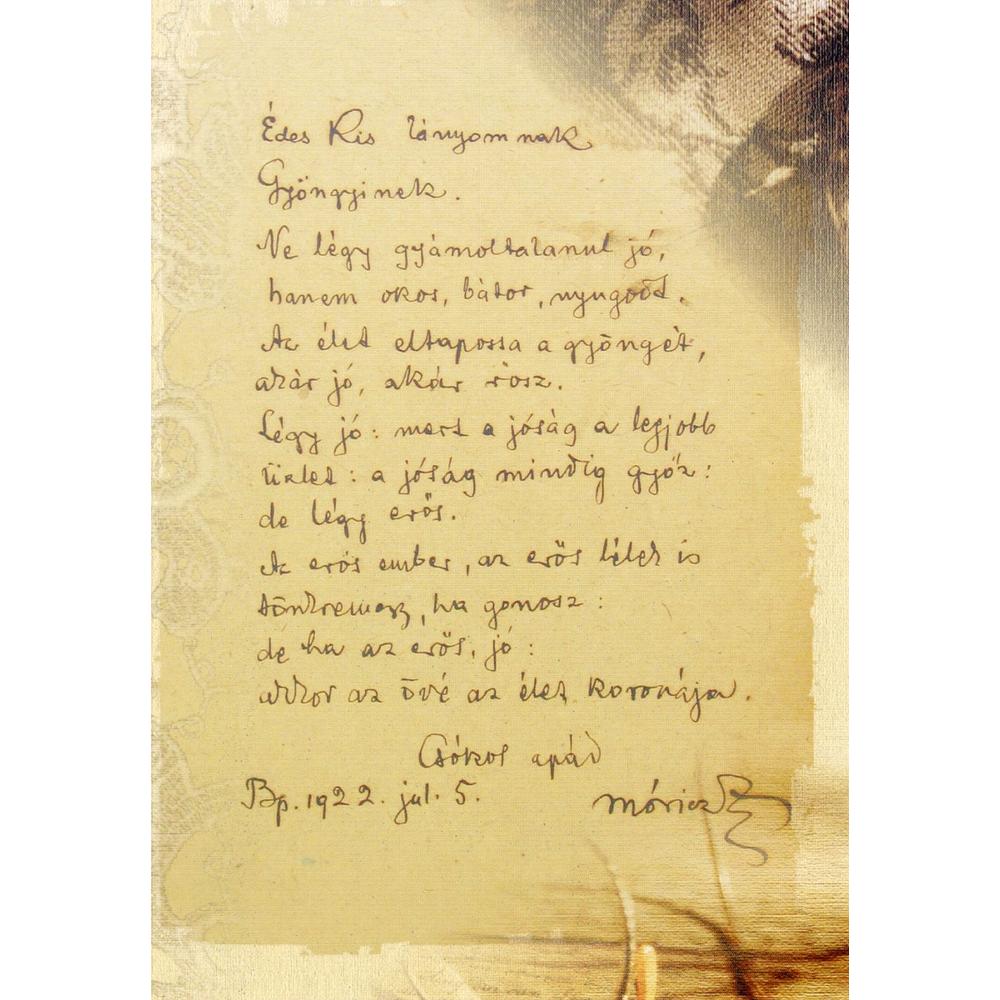 Édes Kis lányomnak
Gyöngyinek.
Ne légy gyámoltalanul jó,
hanem okos, bátor, nyugodt.
Az élet eltapossa a gyöngét,
akár jó, akár rosz.
Légy jó: mert a jóság a legjobb
üzlet: a jóság mindig győz:
de légy erős.
Az erős ember, az erős lélek is
tönkremegy, ha gonosz:
de ha az erős, jó:
akkor az övé az élet koronája.
Csókol apád
Bp. 1922. jul. 5.
Móricz